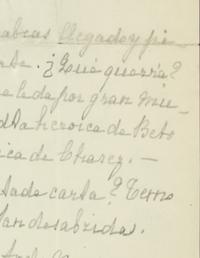 abias llegado y fi-
¿Qué querría?
por gran mu-
la heroica de Beto
ica de Chavez.—
tada carta? Temo
tan desabrida.